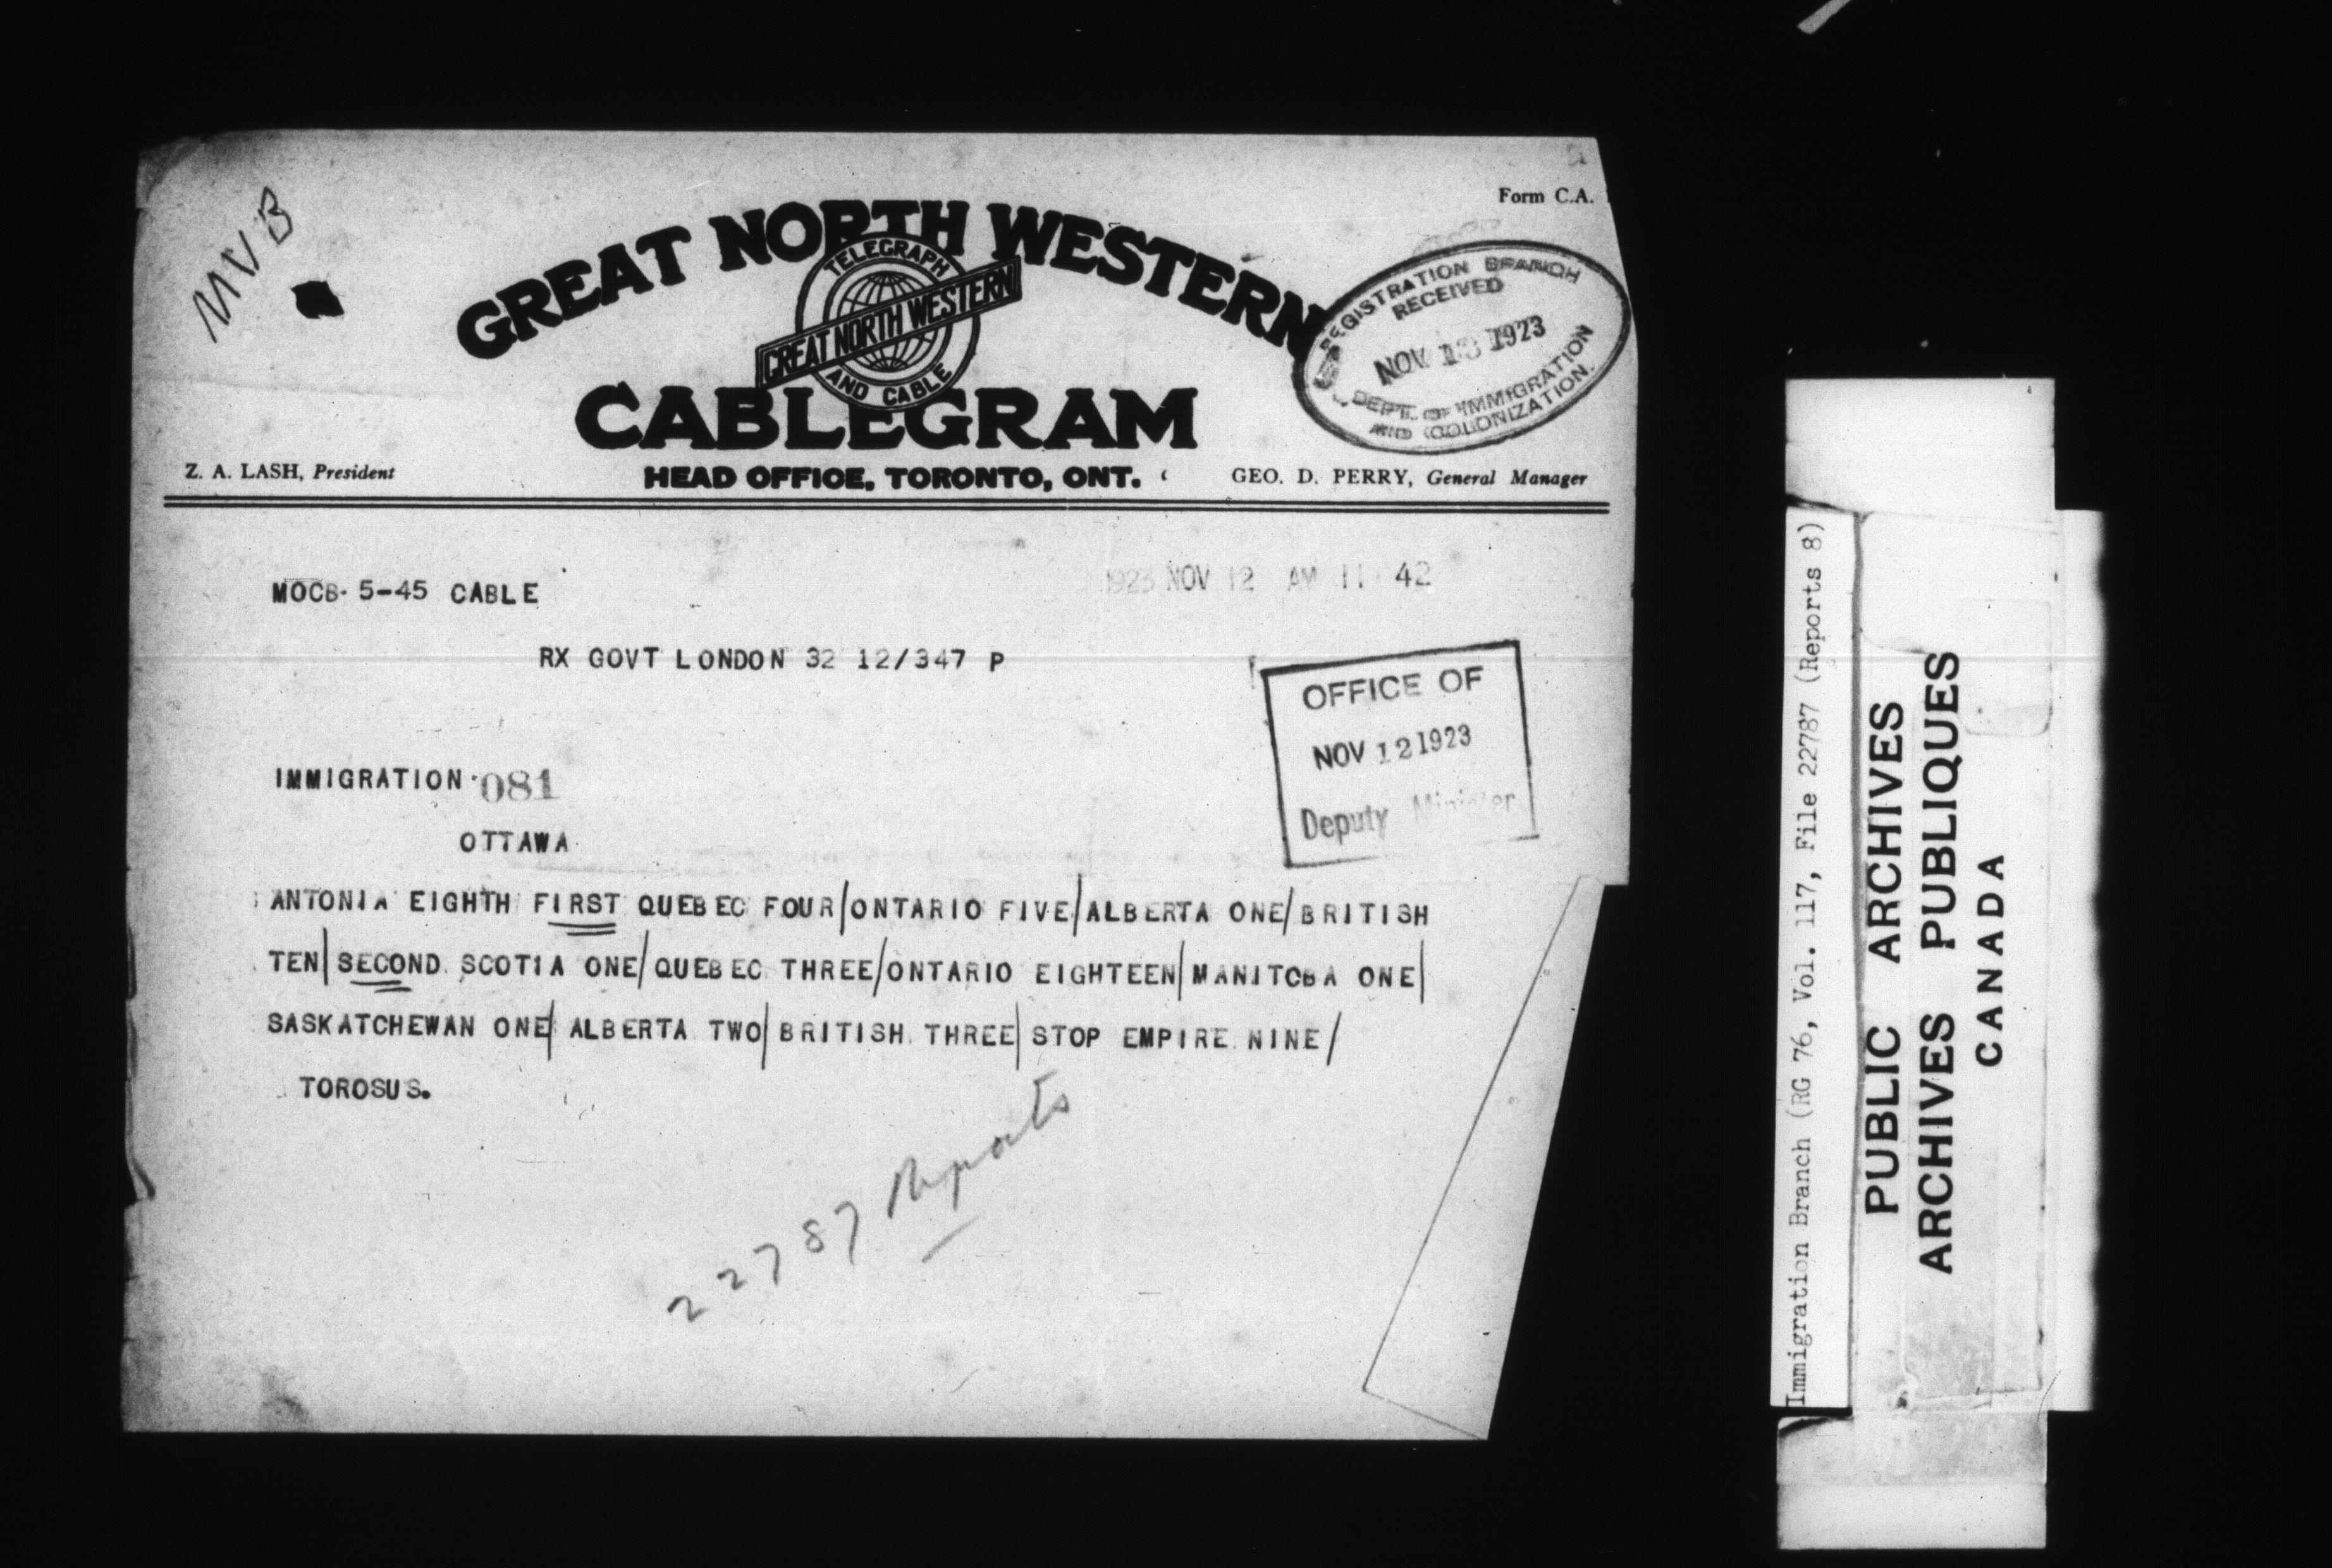 MVB
Form C.A.
GREAT NORTH WESTERN
TELEGRAPH
GREAT NORTH WESTERN
AND CABLE
CABLEGRAM
REGISTRATION BRANCH
RECEIVED
NOV 13 1923
DEPT. OF IMMIGRATION
AND COLONIZATION.
Z. A. LASH, President
HEAD OFFICE, TORONTO, ONT.
GEO. D. PERRY, General Manager
1923 NOV 12 AM 11 42
MOCB 5-45 CABLE
RX GOVT LONDON 32 12/347 P
OFFICE OF
NOV 12 1923
Deputy Minister
IMMIGRATION 081
OTTAWA
ANTONIA EIGHTH FIRST QUEBEC FOUR/ONTARIO FIVE/ALBERTA ONE/BRITISH
TEN/SECOND SCOTIA ONE/QUEBEC THREE/ONTARIO EIGHTEEN/MANITOBA ONE/
SASKATCHEWAN ONE/ALBERTA TWO/BRITISH THREE/STOP EMPIRE NINE/
TOROSUS.
22787 Reports
Immigration Branch (RG 76, Vol. 117, File 22787 (Reports 8)
PUBLIC ARCHIVES
ARCHIVES PUBLIQUES
CANADA